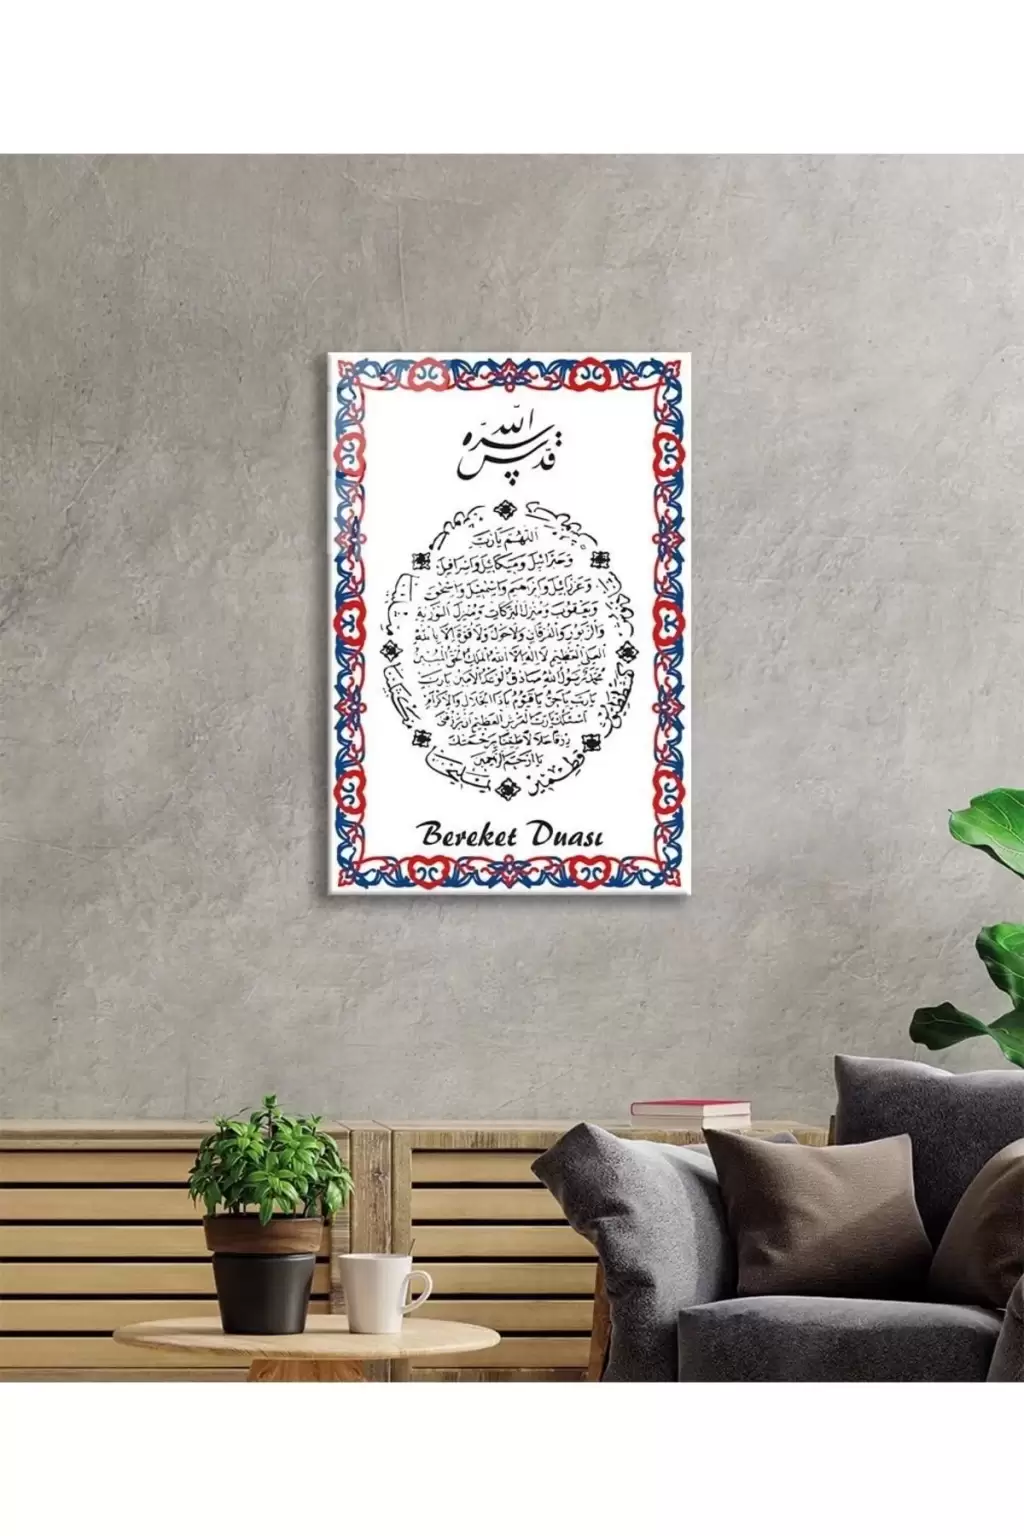 قدس الله سره
اللهم يا رب
وجبرائيل وميكائيل واسرافيل
وعزرائيل وابراهيم واسمعيل واسحق
ويعقوب ومنزل البركات ومنزل التورية
والزبور والفرقان ولا حول ولا قوة الا بالله
العلى العظيم لا اله الا الله الملك الحق المبين
محمد رسول الله صادق الوعد الامين يا رب
يا رب يا حى يا قيوم يا ذا الجلال والاكرام
اسئلك يا رب العرش العظيم ان ترزقنى
رزقا حلالا طيبا برحمتك
يا ارحم الراحمين
قطمير
يمليخا
Bereket Duası